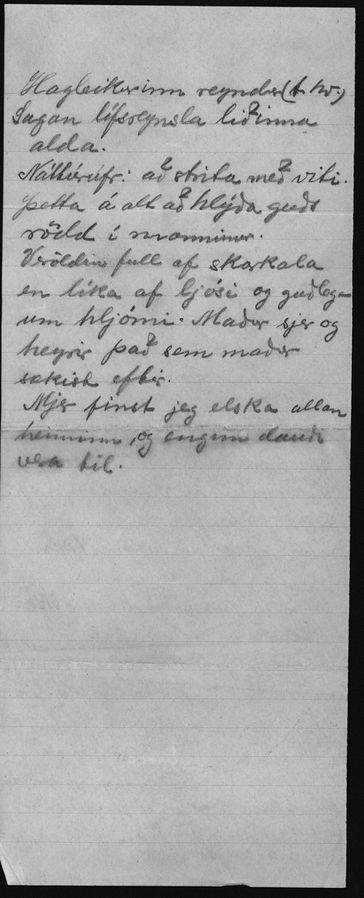 Hagleikurinn reyndur (t. hv.)
Sagan lífsreynsla liðinna
alda.
Náttúrufr: að strita með viti.
Þetta á alt að hlýða guðs
rödd í manninum.
Veröldin full af skarkala
en líka af ljósi og guðleg-
um hljómi. Maður sjer og
heyrir það sem maður
sækist eftir.
Mjer finst jeg elska allan
heiminn, og enginn dauði
vera til.